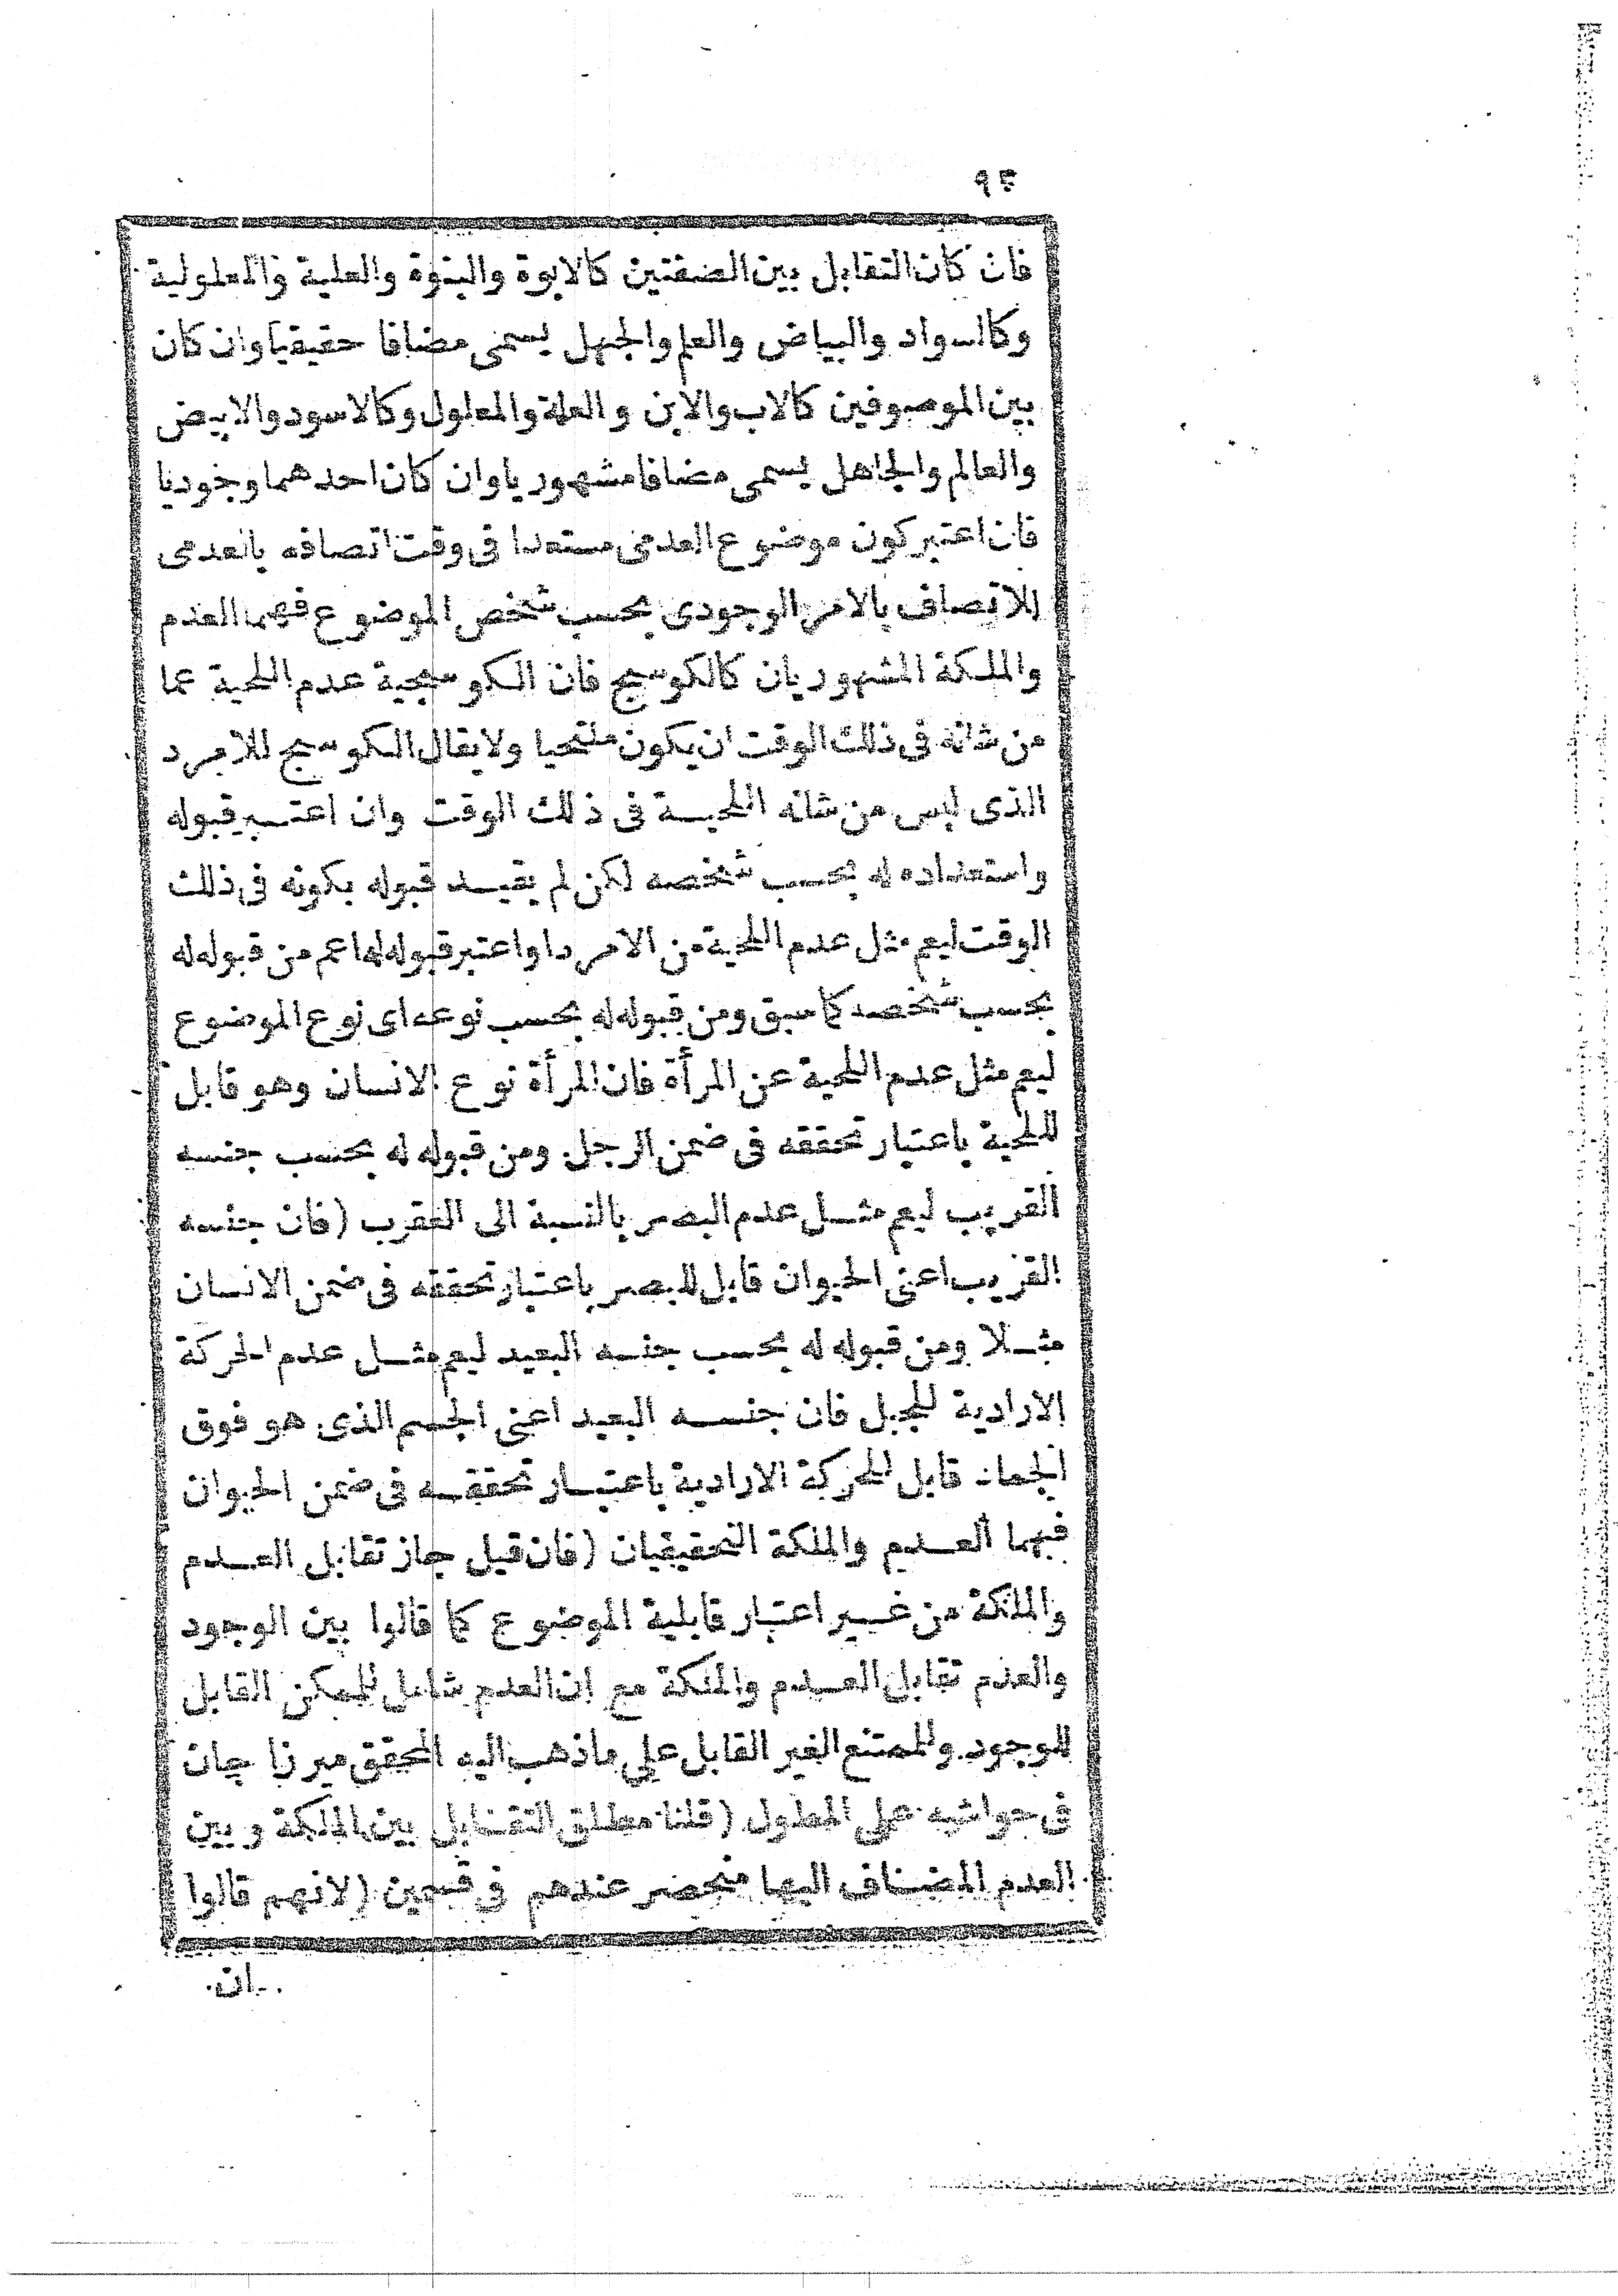 ٩٤
فان كان التقابل بين الصفتين كالابوة والبنوة والعلية والمعلولية
وكالسواد والبياض والعلم والجهل يسمى مضافا حقيقيا وان كان
بين الموصوفين كالاب والابن والعلة والمعلول وكالاسود والابيض
والعالم والجاهل يسمى مضافا مشهوريا وان كان احدهما وجوديا
فان اعتبر كون موضوع العدمى مستعدا فى وقت اتصافه بالعدمى
للاتصاف بالامر الوجودى بحسب شخص الموضوع فهما العدم
والملكة المشهوريان كالكوسج فان الكوسجية عدم اللحية عما
من شانه فى ذلك الوقت ان يكون ملتحيا ولا يقال الكوسج للامرد
الذى ليس من شانه اللحية فى ذلك الوقت وان اعتبر قبوله
واستعداده له بحسب شخصه لكن لم يقيد قبوله بكونه فى ذلك
الوقت ليعم مثل عدم اللحية من الامرد او اعتبر قبوله لها اعم من قبوله له
بحسب شخصه كما سبق ومن قبوله له بحسب نوعه اى نوع الموضوع
ليعم مثل عدم اللحية عن المرأة فان المرأة نوع الانسان وهو قابل
للحية باعتبار تحققه فى ضمن الرجل ومن قبوله له بحسب جنسه
القريب ليعم مثل عدم البصر بالنسبة الى العقرب (فان جنسه
القريب اعنى الحيوان قابل للبصر باعتبار تحققه فى ضمن الانسان
مثلا ومن قبوله له بحسب جنسه البعيد ليعم مثل عدم الحركة
الارادية للجبل فان جنسه البعيد اعنى الجسم الذى هو فوق
الجماد قابل للحركة الارادية باعتبار تحققه فى ضمن الحيوان
فهما العدم والملكة التحقيقيان (فان قيل جاز تقابل العدم
والملكة من غير اعتبار قابلية الموضوع كما قالوا بين الوجود
والعدم تقابل العدم والملكة مع ان العدم شامل للممكن القابل
للوجود وللممتنع الغير القابل على ما ذهب اليه المحقق ميرزا جان
فى حواشيه على المطول (قلنا مطلق التقابل بين الملكة وبين
العدم المضاف اليها منحصر عندهم فى قسمين (لانهم قالوا
ان